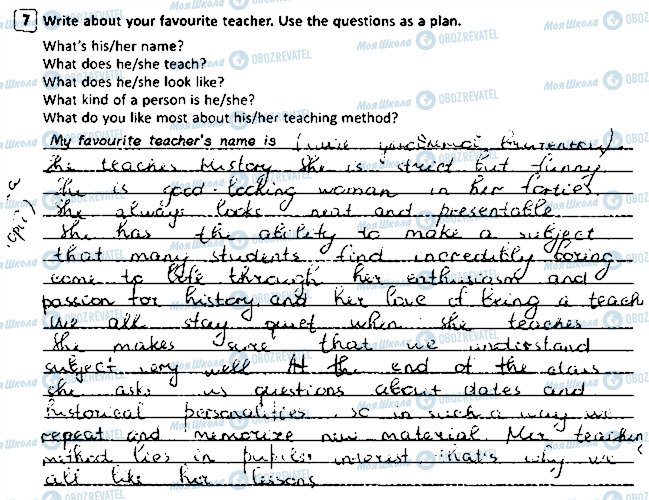 7 Write about your favourite teacher. Use the questions as a plan.
What's his/her name?
What does he/she teach?
What does he/she look like?
What kind of a person is he/she?
What do you like most about his/her teaching method?
My favourite teacher's name is
She teaches history. She is strict but funny.
She is good-looking woman in her forties.
She always looks neat and presentable.
She has the ability to make a subject
that many students find incredibly boring
come to life through her enthusiasm and
passion for history and her love of being a teach
We all stay quiet when she teaches.
She makes sure that we understand
subject very well. At the end of the class
she asks us questions about dates and
historical personalities. so in such a way we
repeat and memorize new material. Her teaching
method lies in pupils interest that's why we
all like her lessons
Моя Школа OBOZREVATEL